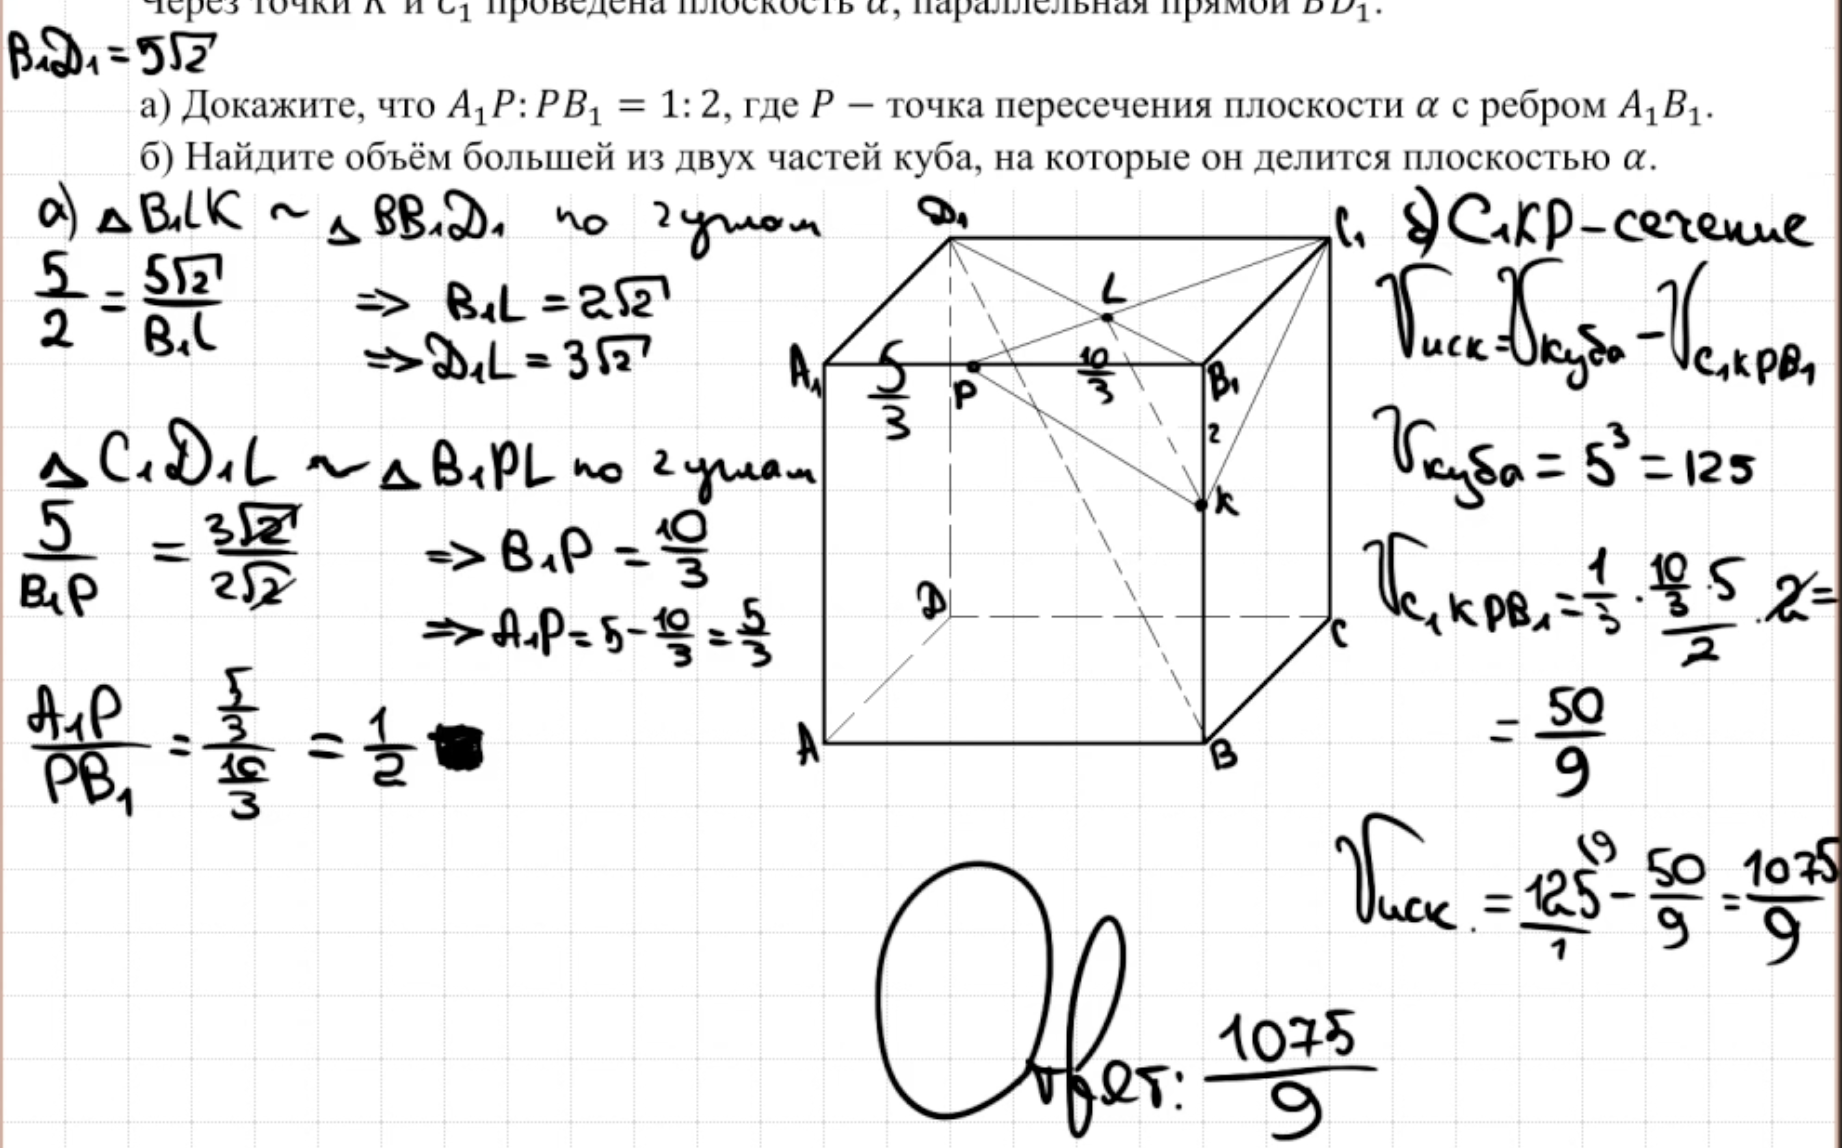 Через точки K и C₁ проведена плоскость α, параллельная прямой BD₁.
B₁D₁ = 5√2
а) Докажите, что A₁P: PB₁ = 1: 2, где P – точка пересечения плоскости α с ребром A₁B₁.
б) Найдите объём большей из двух частей куба, на которые он делится плоскостью α.
а) △ B₁LK ~ △ BB₁D₁ по 2 углам
5/2 = 5√2/B₁L => B₁L = 2√2
=> D₁L = 3√2
△ C₁D₁L ~ △ B₁PL по 2 углам
5/B₁P = 3√2/2√2 => B₁P = 10/3
=> A₁P = 5 - 10/3 = 5/3
A₁P/PB₁ = 5/3/10/3 = 1/2
D₁
C₁
L
A₁
5/3
P
10/3
B₁
2
K
D
C
A
B
б) C₁KP - сечение
Vиск = Vкуба - VC₁KPB₁
Vкуба = 5³ = 125
VC₁KPB₁ = 1/3 · 10/3 · 5/2 · 2 =
= 50/9
Vиск. = 125/1 (9 - 50/9 = 1075/9
Ответ: 1075/9